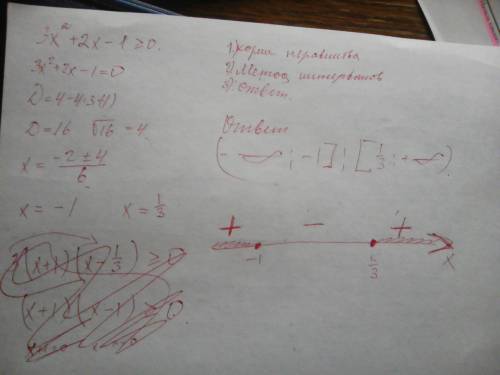 3x² + 2x - 1 ≥ 0.
3x² + 2x - 1 = 0
D = 4 - 4·3·(-1)
D = 16 √16 = 4
x = (-2 ± 4) / 6
x = -1 x = 1/3
(x+1)(x - 1/3) ≥ 0
1) корни неравенства
2) Метод интервалов
3) Ответ.
Ответ
(-∞; -1] ; [1/3; +∞)
+ - +
-1 1/3 x